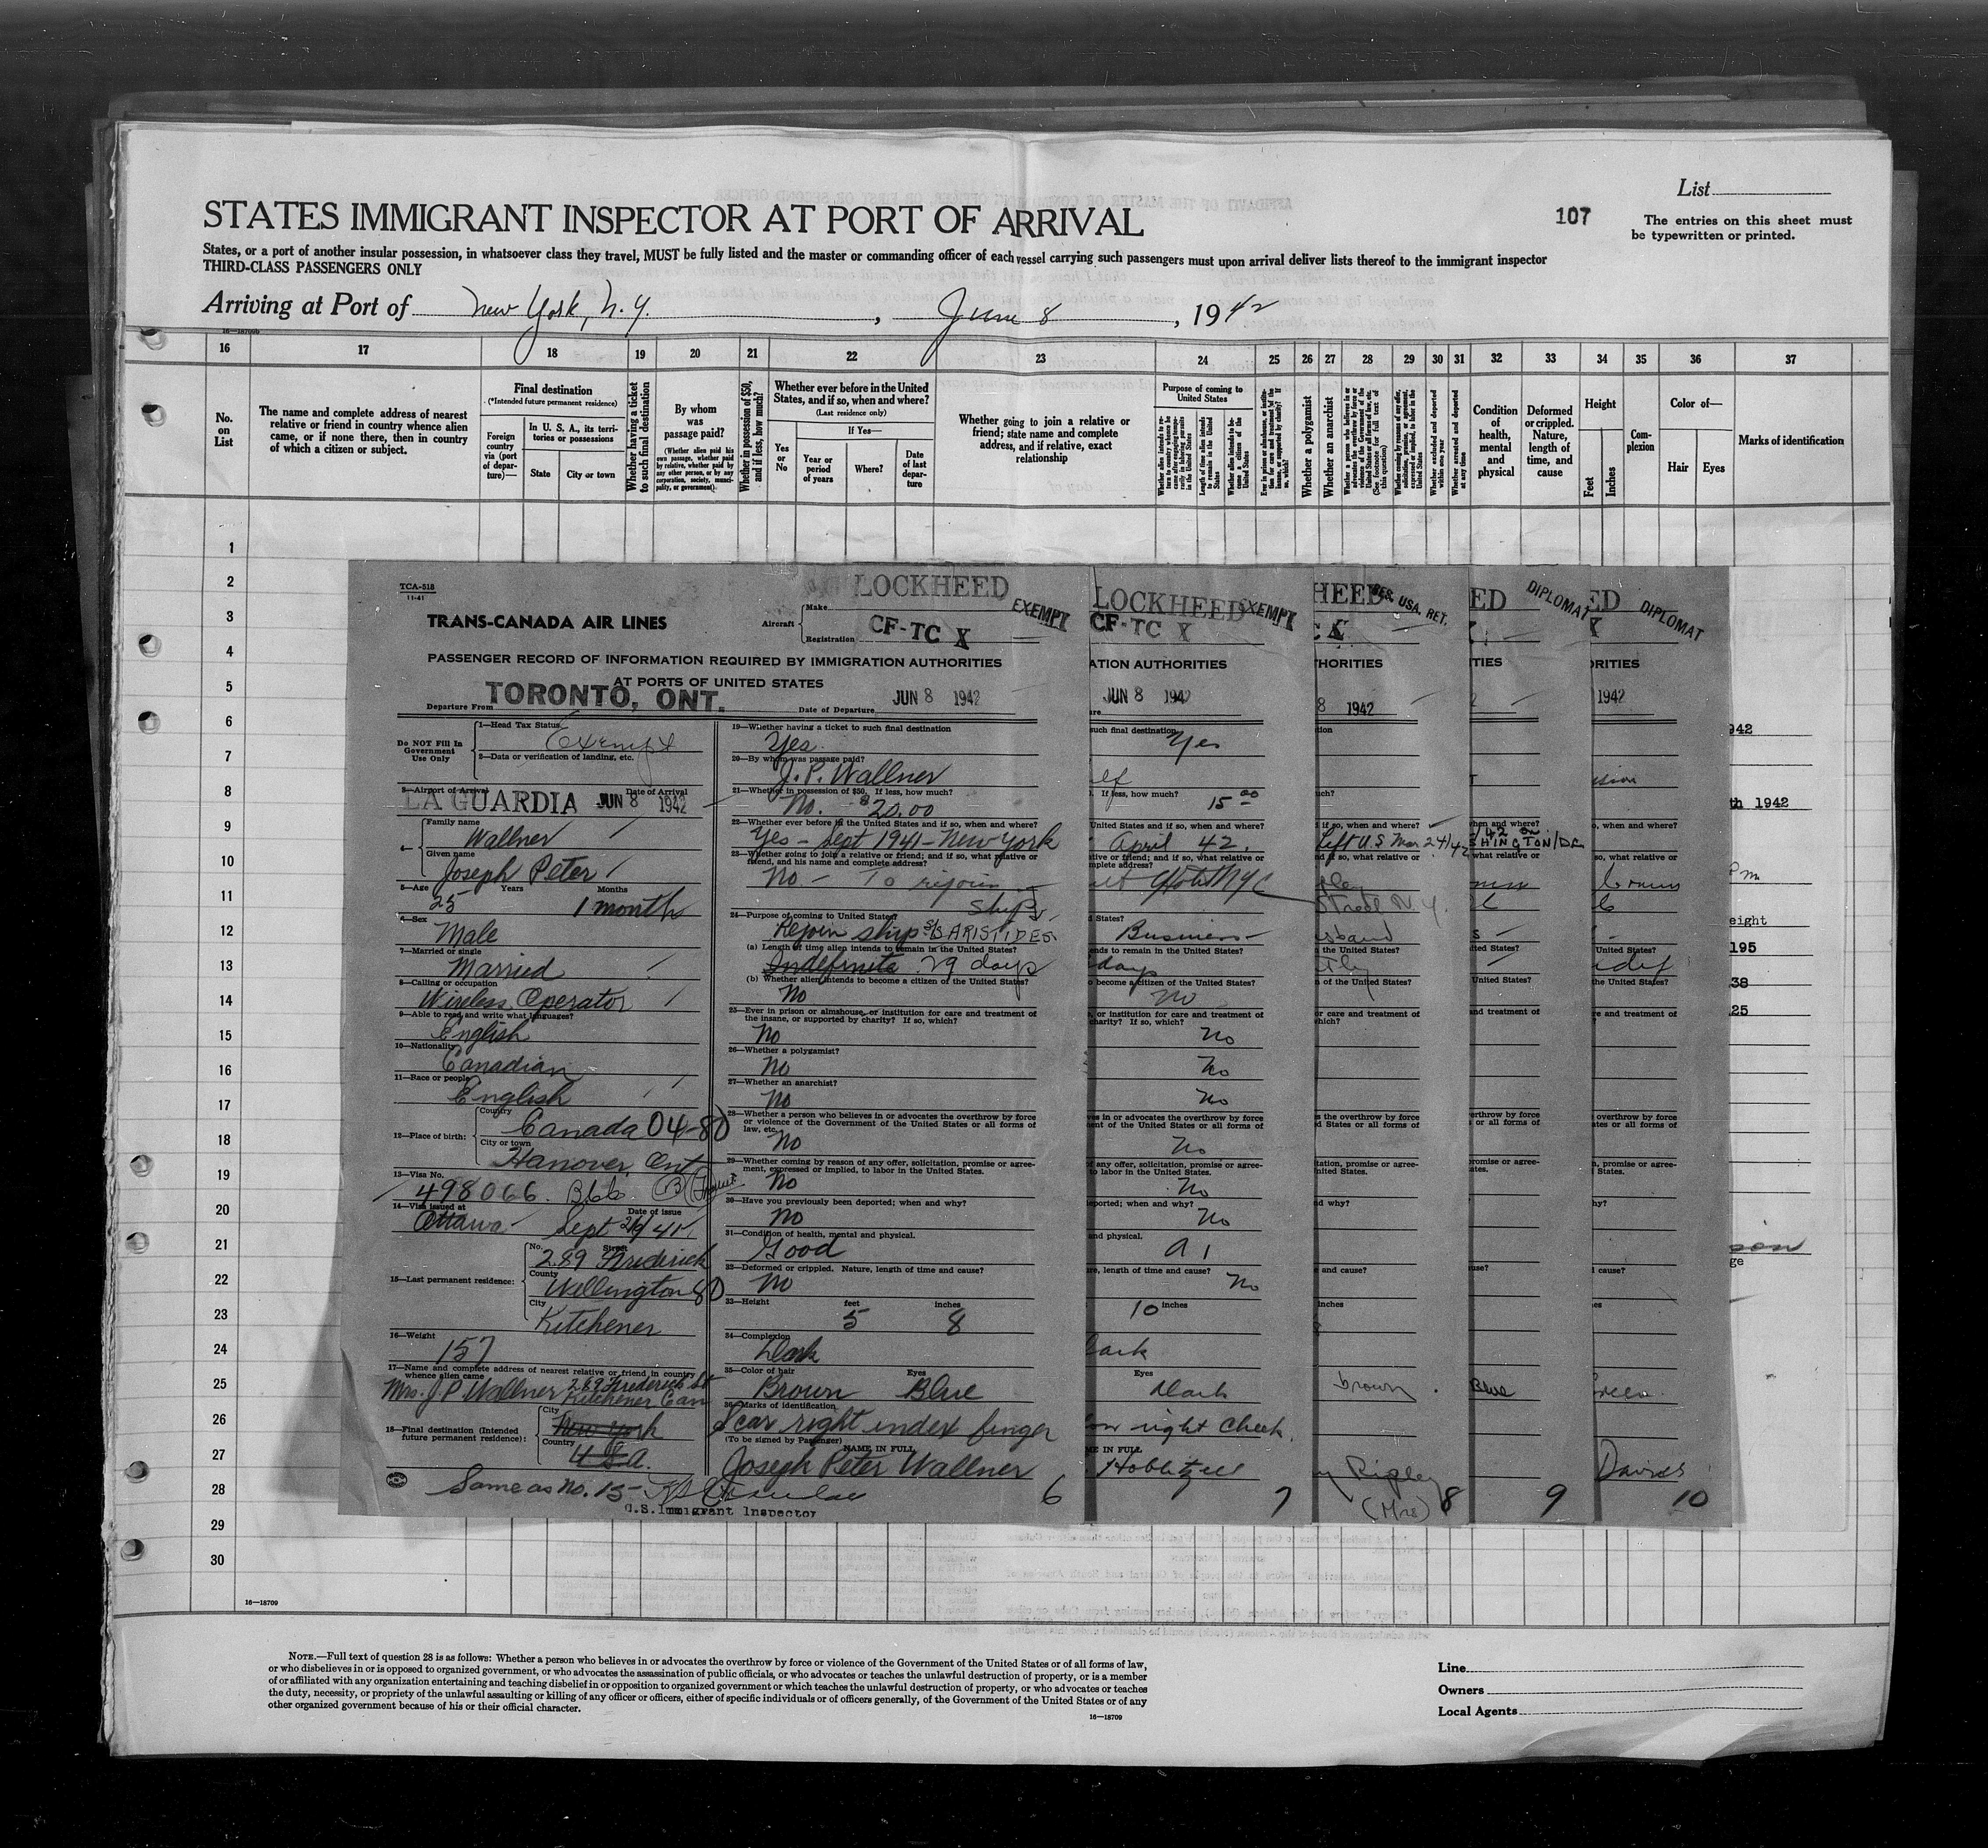 List
107
The entries on this sheet must
be typewritten or printed.
STATES IMMIGRANT INSPECTOR AT PORT OF ARRIVAL
States, or a port of another insular possession, in whatsoever class they travel, MUST be fully listed and the master or commanding officer of each vessel carrying such passengers must upon arrival deliver lists thereof to the immigrant inspector
THIRD-CLASS PASSENGERS ONLY
Arriving at Port of New York, N.Y., June 8, 1942
16 17 18 19 20 21 22 23 24 25 26 27 28 29 30 31 32 33 34 35 36 37
No. on List
The name and complete address of nearest
relative or friend in country whence alien
came, or if none there, then in country
of which a citizen or subject.
Final destination
(*Intended future permanent residence)
Foreign country via (port of departure)—
In U. S. A., its territories or possessions
State
City or town
Whether having a ticket to such final destination
By whom was passage paid?
(Whether alien paid his own passage, whether paid by relative, whether paid by any other person, or by any corporation, society, municipality, or government)
Whether in possession of $50, and if less, how much?
Whether ever before in the United
States, and if so, when and where?
(Last residence only)
Yes or No
If Yes—
Year or period of years
Where?
Date of last departure
Whether going to join a relative or
friend; state name and complete
address, and if relative, exact
relationship
Purpose of coming to United States
Whether a polygamist
Whether an anarchist
Condition of health, mental and physical
Deformed or crippled. Nature, length of time, and cause
Height
Feet
Inches
Complexion
Color of—
Hair
Eyes
Marks of identification
1
2
3
4
5
6
7
8
9
10
11
12
13
14
15
16
17
18
19
20
21
22
23
24
25
26
27
28
29
30
TCA-518
11-41
TRANS-CANADA AIR LINES
Aircraft
Make LOCKHEED
Registration CF-TC X
EXEMPT
PASSENGER RECORD OF INFORMATION REQUIRED BY IMMIGRATION AUTHORITIES
AT PORTS OF UNITED STATES
Departure From TORONTO, ONT.
Date of Departure JUN 8 1942
Do NOT Fill In Government Use Only
1—Head Tax Status
Exempt
2—Data or verification of landing, etc.
3—Airport of Arrival
Date of Arrival
LA GUARDIA JUN 8 1942
4—
Family name
Wallner
Given name
Joseph Peter
5—Age Years Months
25 1 month
6—Sex
Male
7—Married or single
Married
8—Calling or occupation
Wireless Operator
9—Able to read and write what languages?
English
10—Nationality
Canadian
11—Race or people
English
12—Place of birth:
Country
Canada 04-80
City or town
Hanover, Ont
13—Visa No.
498066
14—Visa issued at
Date of issue
Ottawa Sept 29/41
15—Last permanent residence:
No. Street
289 Frederick
County
Wellington 80
City
Kitchener
16—Weight
157
17—Name and complete address of nearest relative or friend in country
whence alien came
Mrs. J.P. Wallner 289 Frederick St
Kitchener Can
18—Final destination (Intended
future permanent residence):
City
New York
Country
U.S.A.
Same as No. 15
U.S. Immigrant Inspector
19—Whether having a ticket to such final destination
Yes
20—By whom was passage paid?
J.P. Wallner
21—Whether in possession of $50. If less, how much?
No. $20.00
22—Whether ever before in the United States and if so, when and where?
Yes - Sept 1941 - New York
23—Whether going to join a relative or friend; and if so, what relative or
friend, and his name and complete address?
No - To rejoin
ship
24—Purpose of coming to United States?
Rejoin ship S/S ARISTIDES
(a) Length of time alien intends to remain in the United States?
Indefinite 29 days
(b) Whether alien intends to become a citizen of the United States?
No
25—Ever in prison or almshouse, or institution for care and treatment of
the insane, or supported by charity? If so, which?
No
26—Whether a polygamist?
No
27—Whether an anarchist?
No
28—Whether a person who believes in or advocates the overthrow by force
or violence of the Government of the United States or all forms of
law, etc.
No
29—Whether coming by reason of any offer, solicitation, promise or agree-
ment, expressed or implied, to labor in the United States.
No
30—Have you previously been deported; when and why?
No
31—Condition of health, mental and physical.
Good
32—Deformed or crippled. Nature, length of time and cause?
No
33—Height feet inches
5 8
34—Complexion
Dark
35—Color of hair Eyes
Brown Blue
36—Marks of identification
Scar right index finger
(To be signed by Passenger)
NAME IN FULL
Joseph Peter Wallner
6
LOCKHEED
EXEMPT
CF-TC X
ATION AUTHORITIES
JUN 8 1942
such final destination
Yes
elf
If less, how much?
15 00
United States and if so, when and where?
April 42.
NYC
States?
Business
ends to remain in the United States?
days
o become a citizen of the United States?
No
or institution for care and treatment of
charity? If so, which?
No
No
No
es in or advocates the overthrow by force
ment of the United States or all forms of
No
any offer, solicitation, promise or agree-
to labor in the United States.
No
eported; when and why?
No
and physical.
A 1
e, length of time and cause?
No
10 inches
ark
Eyes
Dark
right cheek.
ME IN FULL
Hoblitzell
7
HEED
RES. USA. RET.
HORITIES
8 1942
Left U.S. Mar 24/42
Street N.Y.
usband
brown
Ripley
(Mrs)
8
ED
DIPLOMAT
TIES
Blue
9
ED
DIPLOMAT
RITIES
1942
Green
Davies
10
942
th 1942
P m
eight
195
38
25
son
ge
16—18709
NOTE.—Full text of question 28 is as follows: Whether a person who believes in or advocates the overthrow by force or violence of the Government of the United States or of all forms of law,
or who disbelieves in or is opposed to organized government, or who advocates the assassination of public officials, or who advocates or teaches the unlawful destruction of property, or is a member
of or affiliated with any organization entertaining and teaching disbelief in or opposition to organized government or which teaches the unlawful destruction of property, or who advocates or teaches
the duty, necessity, or propriety of the unlawful assaulting or killing of any officer or officers, either of specific individuals or of officers generally, of the Government of the United States or of any
other organized government because of his or their official character.
16—18709
Line
Owners
Local Agents